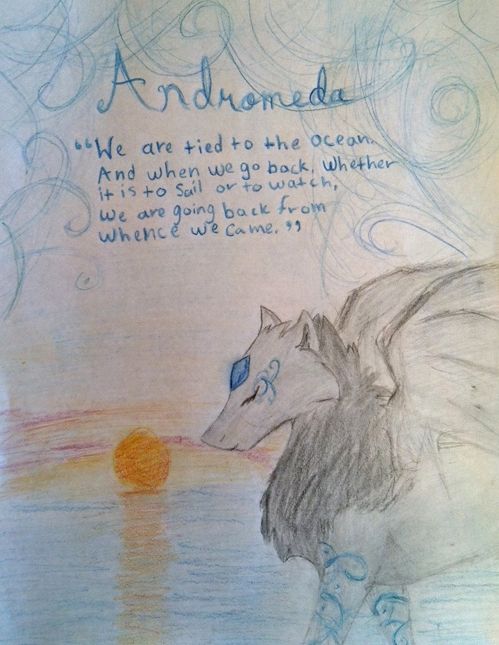 Andromeda
"We are tied to the ocean.
And when we go back, whether
it is to sail or to watch,
we are going back from
whence we came."